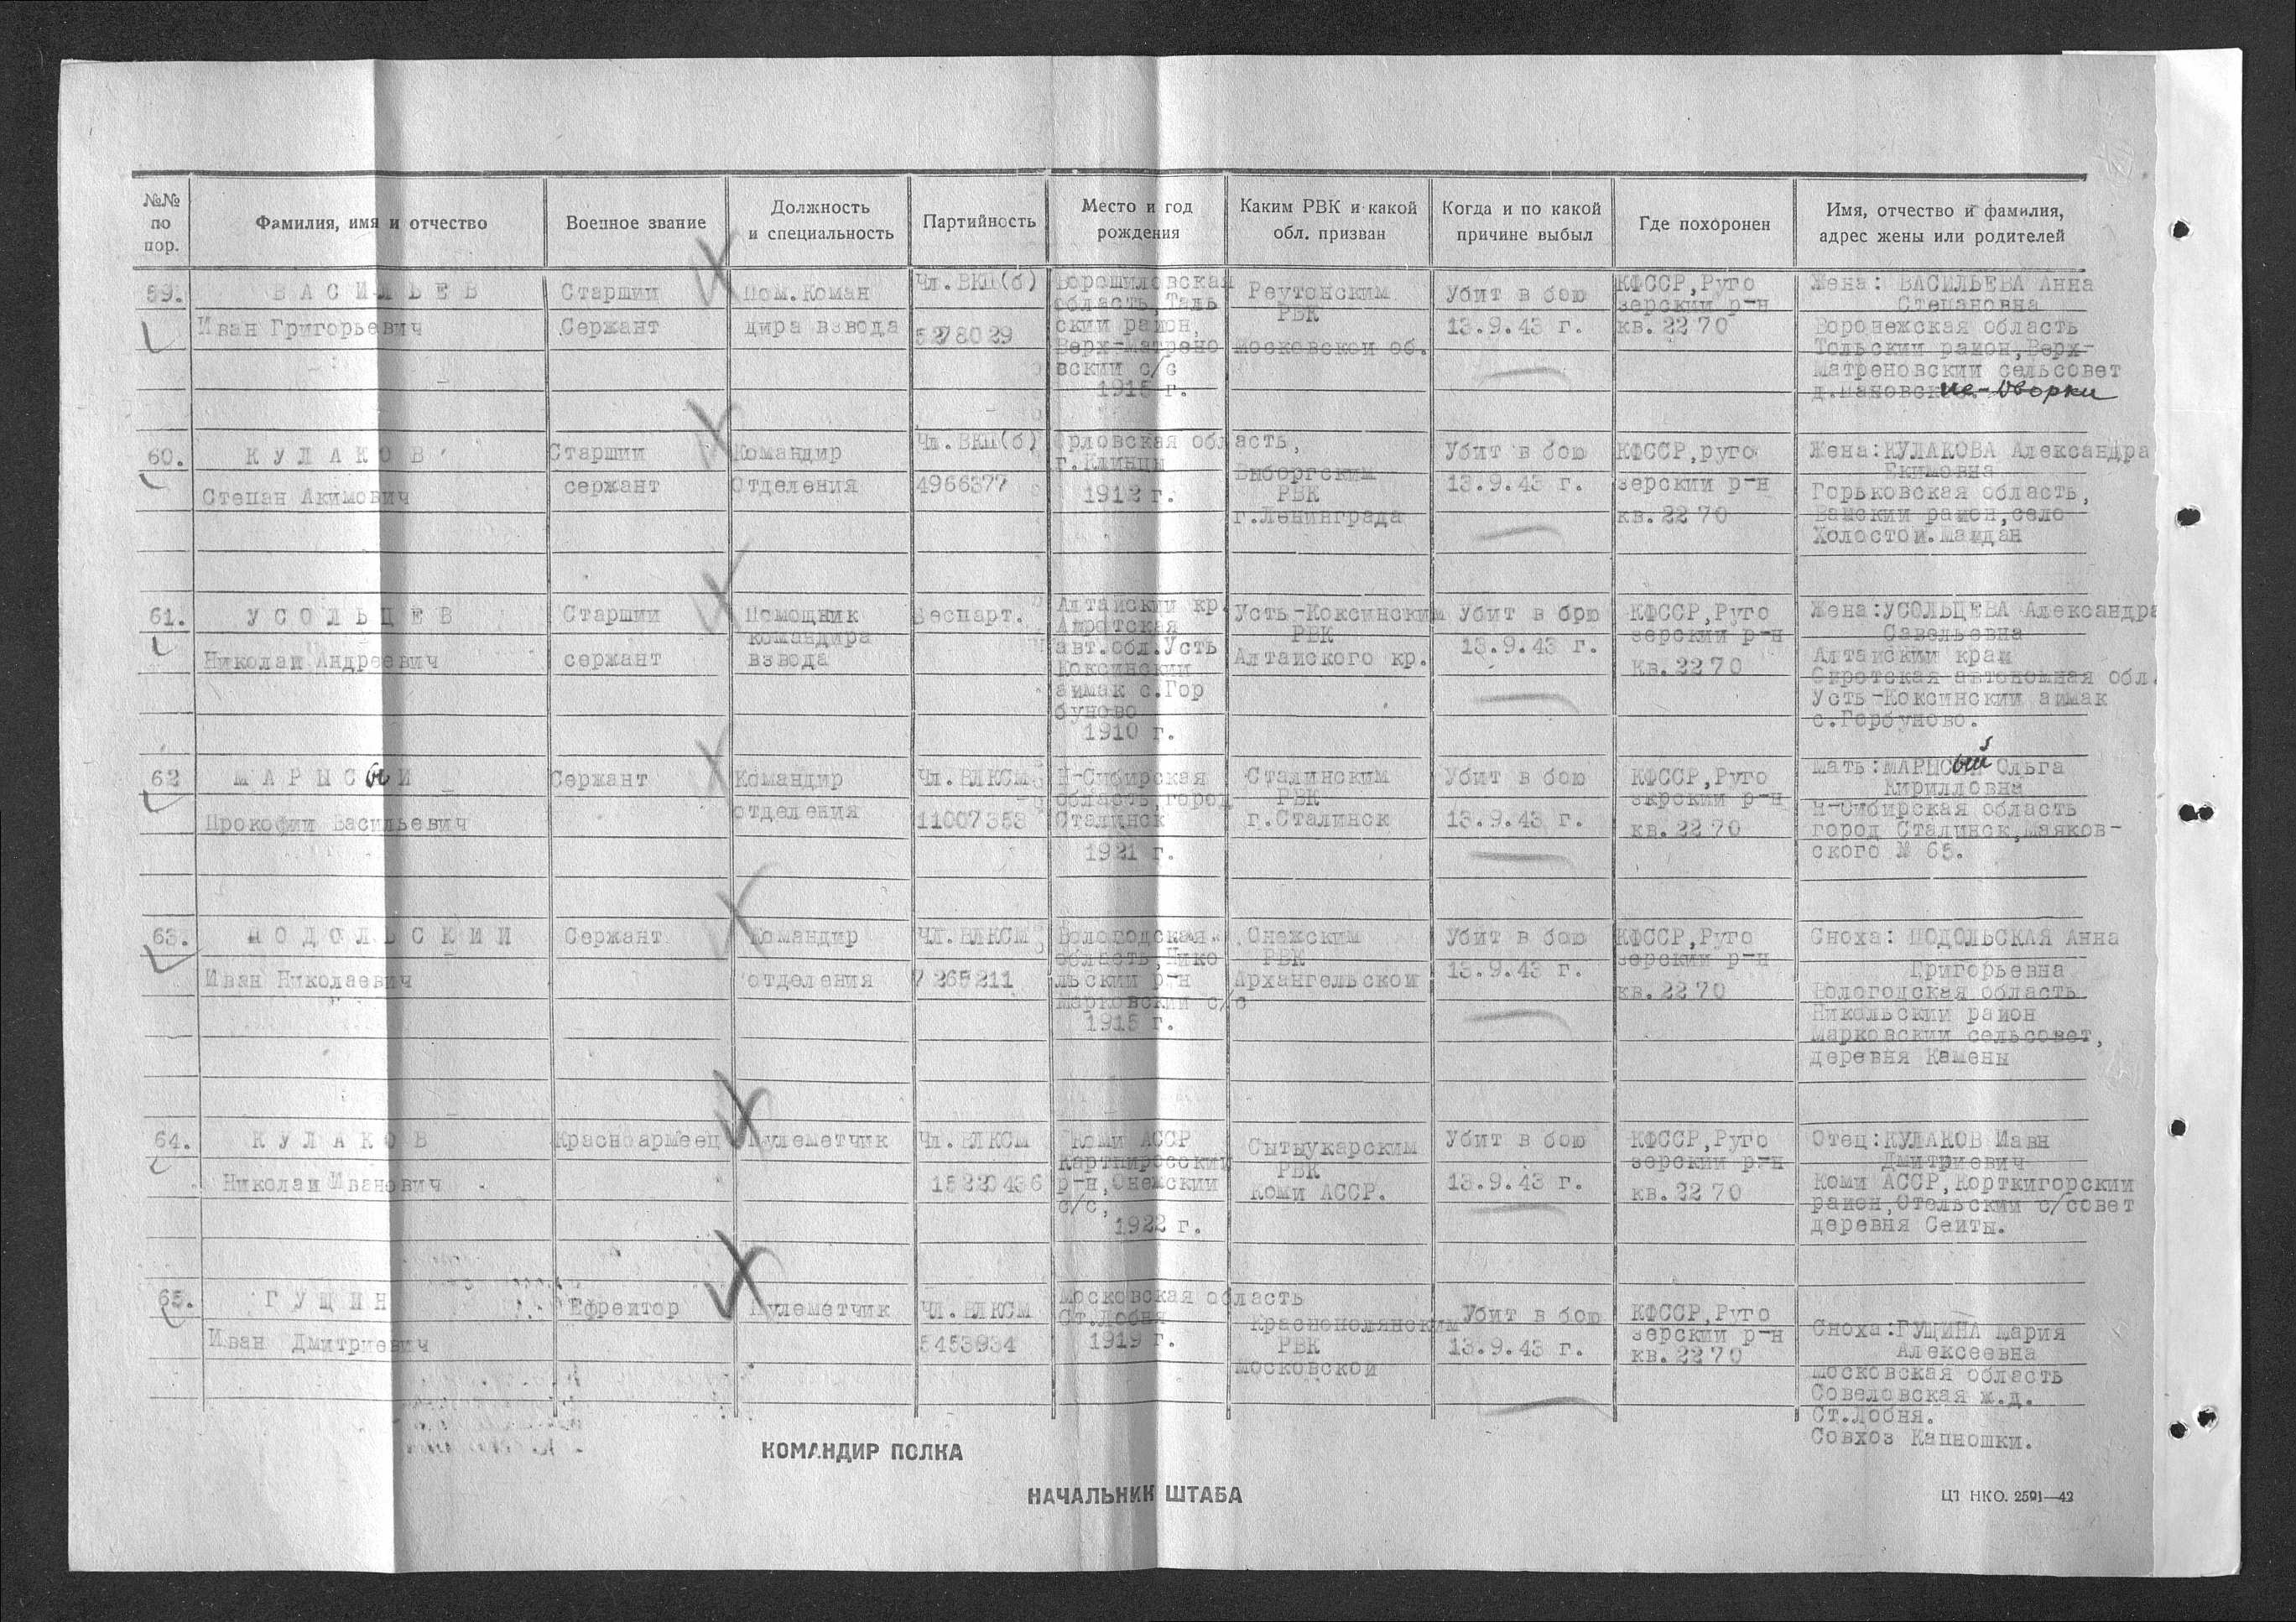 №№ по пор.
Фамилия, имя и отчество
Военное звание
Должность и специальность
Партийность
Место и год рождения
Каким РВК и какой обл. призван
Когда и по какой причине выбыл
Где похоронен
Имя, отчество и фамилия, адрес жены или родителей
59.
ВАСИЛЬЕВ
Иван Григорьевич
Старший
Сержант
Пом.Коман
дира взвода
Чл.ВКП(б)
5278029
Ворошиловская
область, Таль
ский район,
Верх-Матрено
вский с/с
1915 г.
Реутовским
РВК
Московской об.
Убит в бою
13.9.43 г.
КФССР,Руго
зерский р-н
кв.2270
Жена: ВАСИЛЬЕВА Анна
Степановна
Воронежская область
Тольский район,Верх-
Матреновский сельсовет
60.
КУЛАКОВ
Степан Акимович
Старший
сержант
Командир
Отделения
Чл.ВКП(б)
4966377
Орловская область,
г.Клинцы
1912 г.
Выборгским
РВК
г.Ленинграда
Убит в бою
13.9.43 г.
КФССР,руго
зерский р-н
кв.2270
Жена:КУЛАКОВА Александра
Екимовна
Горьковская область,
район,село
Холостой.Майдан
61.
УСОЛЬЦЕВ
Николай Андреевич
Старший
сержант
Помощник
командира
взвода
Беспарт.
Алтайский кр.
авт.обл.Усть
Коксинский
аймак с.Гор
буново
1910 г.
Усть-Коксинским
РВК
Алтайского кр.
Убит в брю
13.9.43 г.
КФССР,Руго
зерский р-н
Кв.2270
Жена:УСОЛЬЦЕВА Александра
Савельевна
Алтайский край
автономная обл.
Усть-Коксинский аймак
с.Горбуново.
62
МАРЫСЫЙ
Прокофий Васильевич
Сержант
Командир
отделения
Чл.ВЛКСМ
11007353
Н-Сибирская
область,город
Сталинск
1921 г.
Сталинским
РВК
г.Сталинск
Убит в бою
13.9.43 г.
КФССР,Руго
р-н
кв.2270
Мать: Ольга
Кирилловна
Н-Сибирская область
город Сталинск,Маяков-
ского № 65.
63.
ПОДОЛЬСКИЙ
Иван Николаевич
Сержант
Командир
отделения
ЧЛ.ВЛКСМ
7265211
Вологодская
область,Нико
льский р-н
Марковский с/с
1915 г.
Онежским
РВК
Архангельской
Убит в бою
13.9.43 г.
КФССР,Руго
зерский р-н
кв.2270
Сноха: ПОДОЛЬСКАЯ Анна
Григорьевна
Вологодская область
Никольский район
Марковский сельсовет,
деревня Камены
64.
КУЛАКОВ
Николай Иванович
Красноармеец
Пулеметчик
Чл.ВЛКСМ
Коми АССР
р-н,Онежский
с/с,
1922 г.
Сытыукарским
РВК
Коми АССР.
Убит в бою
13.9.43 г.
КФССР,Руго
зерский р-н
кв.2270
Отец:КУЛАКОВ Иавн
Дмитриевич
Коми АССР,Корткигорский
район,Отельский с/совет
деревня Сейты.
65.
ГУЩИН
Иван Дмитриевич
Ефрейтор
Пулеметчик
Чл.ВЛКСМ
5453934
Московская область
Ст.Лобня
1919 г.
Краснополянским
РВК
Московской
Убит в бою
13.9.43 г.
КФССР,Руго
зерский р-н
кв.2270
Сноха:ГУЩИНА Мария
Алексеевна
Московская область
Совеловская ж.д.
Ст.Лобня.
Совхоз Капношки.
КОМАНДИР ПОЛКА
НАЧАЛЬНИК ШТАБА
ЦТ НКО. 2591—42